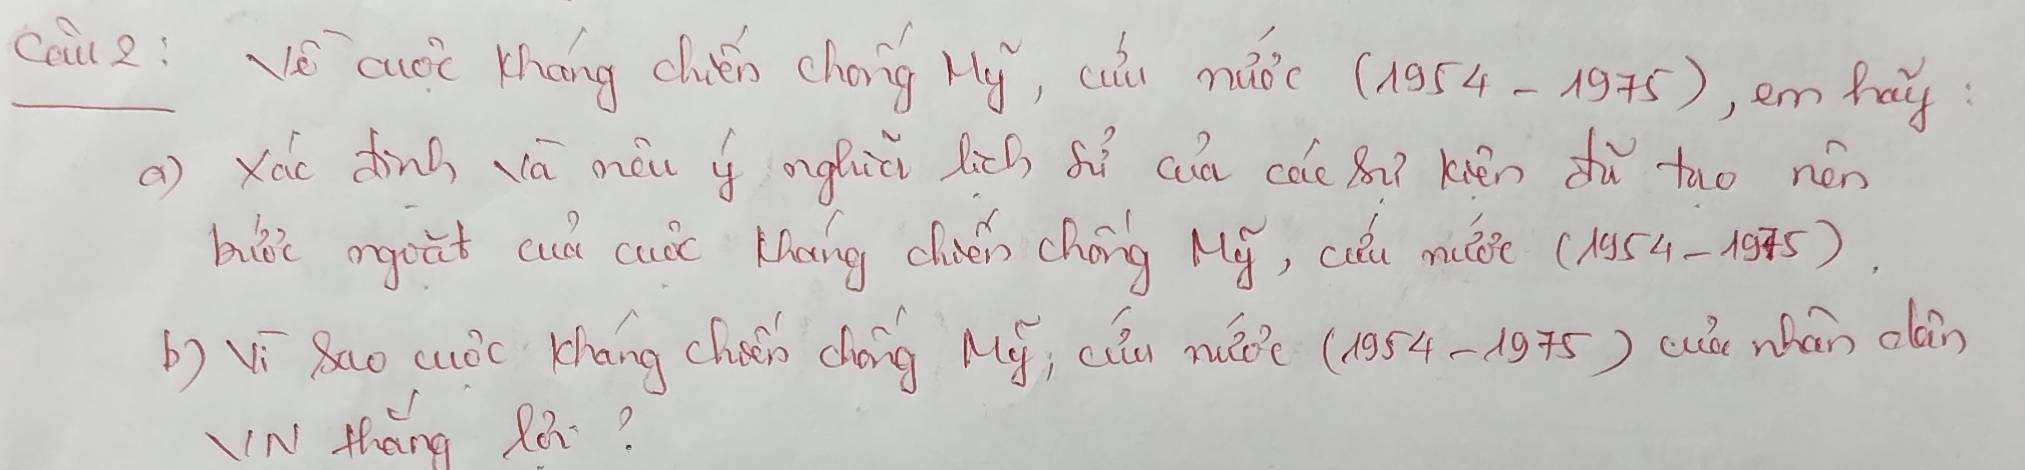 Câu 2: Về cuộc kháng chiến chống Mỹ, cứu nước (1954 - 1975), em hãy:
a) Xác định và nêu ý nghĩa lịch sử của các sự kiện đã tạo nên
bước ngoặt của cuộc kháng chiến chống Mỹ, cứu nước (1954 - 1975).
b) Vì sao cuộc kháng chiến chống Mỹ, cứu nước (1954 - 1975) của nhân dân
VN thắng lợi?